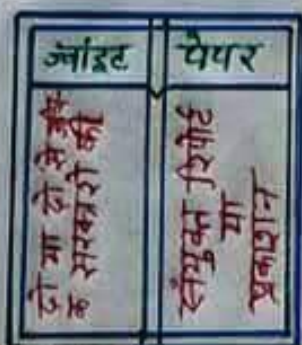 ज्वांइट
पेपर
दो या दो से अधि
क सरकारो की
संयुक्त रिपोर्ट
या
प्रकाशन